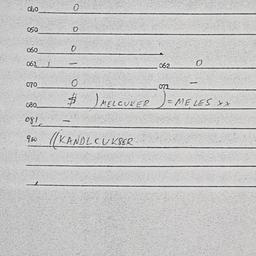 040 0
050 0
060 0
061 1 - 062 0
070 0 071 -
080 $ ) MELCUKER ) = MELES xx
081 -
900 ((KANDLCUKSER